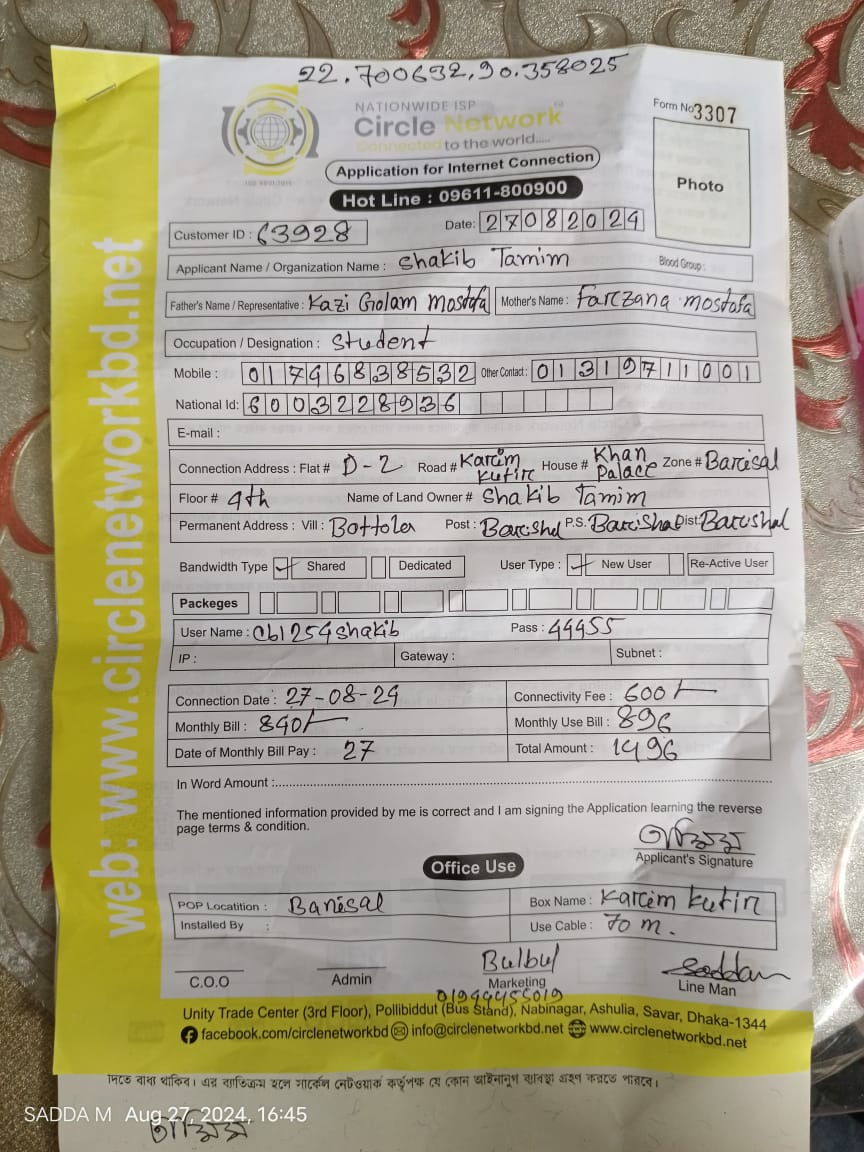 22.700632,90.358025
NATIONWIDE ISP
Circle Network
Connected to the world.....
Form No 3307
Application for Internet Connection
Hot Line : 09611-800900
Photo
Customer ID : 63928 Date: 27082024
Applicant Name / Organization Name : Shakib Tamim Blood Group :
Father's Name / Representative : Kazi Golam Mostofa Mother's Name : Farzana mostofa
Occupation / Designation : Student
Mobile : 01746838532 Other Contact : 01319711001
National Id: 6003228936
E-mail :
Connection Address : Flat # D-2 Road # Karim Kutir House # Khan Palace Zone # Barisal
Floor # 4th Name of Land Owner # Shakib Tamim
Permanent Address : Vill : Bottola Post : Barishal P.S. Barishal Dist: Barishal
Bandwidth Type Shared Dedicated User Type : New User Re-Active User
Packeges
User Name : cb1254shakib Pass : 44455
IP : Gateway : Subnet :
Connection Date : 27-08-24 Connectivity Fee : 600/-
Monthly Bill : 840/- Monthly Use Bill : 896
Date of Monthly Bill Pay : 27 Total Amount : 1496
In Word Amount :
The mentioned information provided by me is correct and I am signing the Application learning the reverse
page terms & condition.
তামিম
Applicant's Signature
Office Use
POP Locatition : Barisal Box Name : Karim Kutir
Installed By : Use Cable : 70 m.
Bulbul Saddam
C.O.O Admin Marketing Line Man
01944455019
Unity Trade Center (3rd Floor), Pollibiddut (Bus Stand), Nabinagar, Ashulia, Savar, Dhaka-1344
facebook.com/circlenetworkbd info@circlenetworkbd.net www.circlenetworkbd.net
web: www.circlenetworkbd.net
দিতে বাধ্য থাকিব। এর ব্যতিক্রম হলে সার্কেল নেটওয়ার্ক কর্তৃপক্ষ যে কোন আইনানুগ ব্যবস্থা গ্রহণ করতে পারবে।
SADDA M Aug 27, 2024, 16:45
তামিম